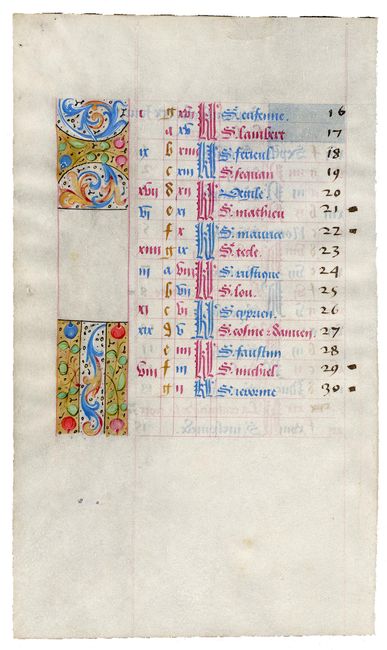 i g xvi kl S. eufemie. 16
a xv kl S. lambert 17
ix b xiiii kl S. ferieul 18
c xiii kl S. sequan 19
xvii d xii kl Vigile 20
vi e xi kl S. mathieu 21
f x kl S. maurice 22
xiiii g ix kl S. tecle. 23
iii a viii kl S. 24
b vii kl S. lou. 25
xi c vi kl S. cyprien. 26
xix d v kl S. cosme z damien. 27
e iiii kl S. faustin 28
viii f iii kl S. michiel 29
g ii kl S. ierome 30